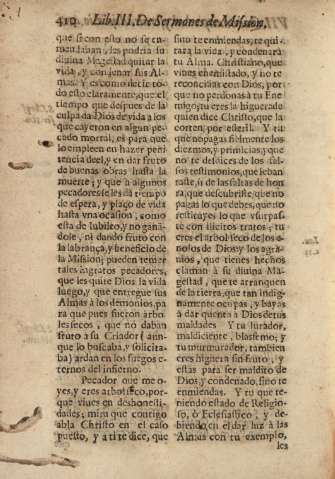 410 Lib. III. De Sermones de Mission,
que si con esto no se en-
mendaban, les podria su
divina Magestad quitar la
vida, y condenar sus Al-
mas. Y es como decir to-
do esto claramente; que el
tiempo que despues de la
culpa da Dios de vida à los
que cayeron en algun pe-
cado mortal, es para que
lo empleen en hacer peni-
tencia de el, y en dar fruto
de buenas obras hasta la
muerte; y que à algunos
pecadores les da tiempo
de espera, y plaço de vida
hasta una ocasion; como
esta de Jubileo, y no gana-
dose, ni dando fruto con
la labrança, y beneficio de
la Mission; pueden temer
tales ingratos pecadores,
que les quite Dios la vida
luego, y que entregue sus
Almas à los demonios, pa-
ra que pues fueron arbo-
les secos, que no daban
fruto à su Criador (aun-
que lo buscaba, y solicita-
ba) ardan en los fuegos e-
ternos del infierno.
Pecador que me o-
yes, y eres arbol seco, por-
que vives en deshonesti-
dades; mira que contigo
abla Christo en el caso
puesto, y a ti te dice, que
sino te enmiendas, te qui-
tara la vida, y condenarà
tu Alma. Christiano, que
vives enemistado, y no te
reconcilias con Dios, por-
que no perdonas à tu Ene-
migo; tu eres la higuera de
quien dice Christo, que la
corten, por esteril. Y tu
que no pagas fielmente los
diezmos, y primicias, y que
no te desdices de los fal-
sos testimonios, que leban-
taste, ò de las faltas de hon-
ra, que descubriste; que no
pagas lo que debes; que no
restituyes lo que usurpas-
te con ilicitos tratos; tu
eres el arbol seco de los e-
nojos de Dios; y los agra-
vios, que tienes hechos
claman à su divina Ma-
gestad, que te arranquen
de la tierra, que tan indig-
namente ocupas, y bayas
à dar quenta à Dios de tus
maldades Y tu Jurador,
maldiciente, blasfemo; y
tu murmurador, tambien
eres higuera sin fruto, y
estas para ser maldito de
Dios, y condenado, sino te
enmiendas. Y tu que te-
niendo estado de Religio-
so, ò Eclesiastico; y de-
biendo, en el dar luz à las
Almas con tu exemplo,
les